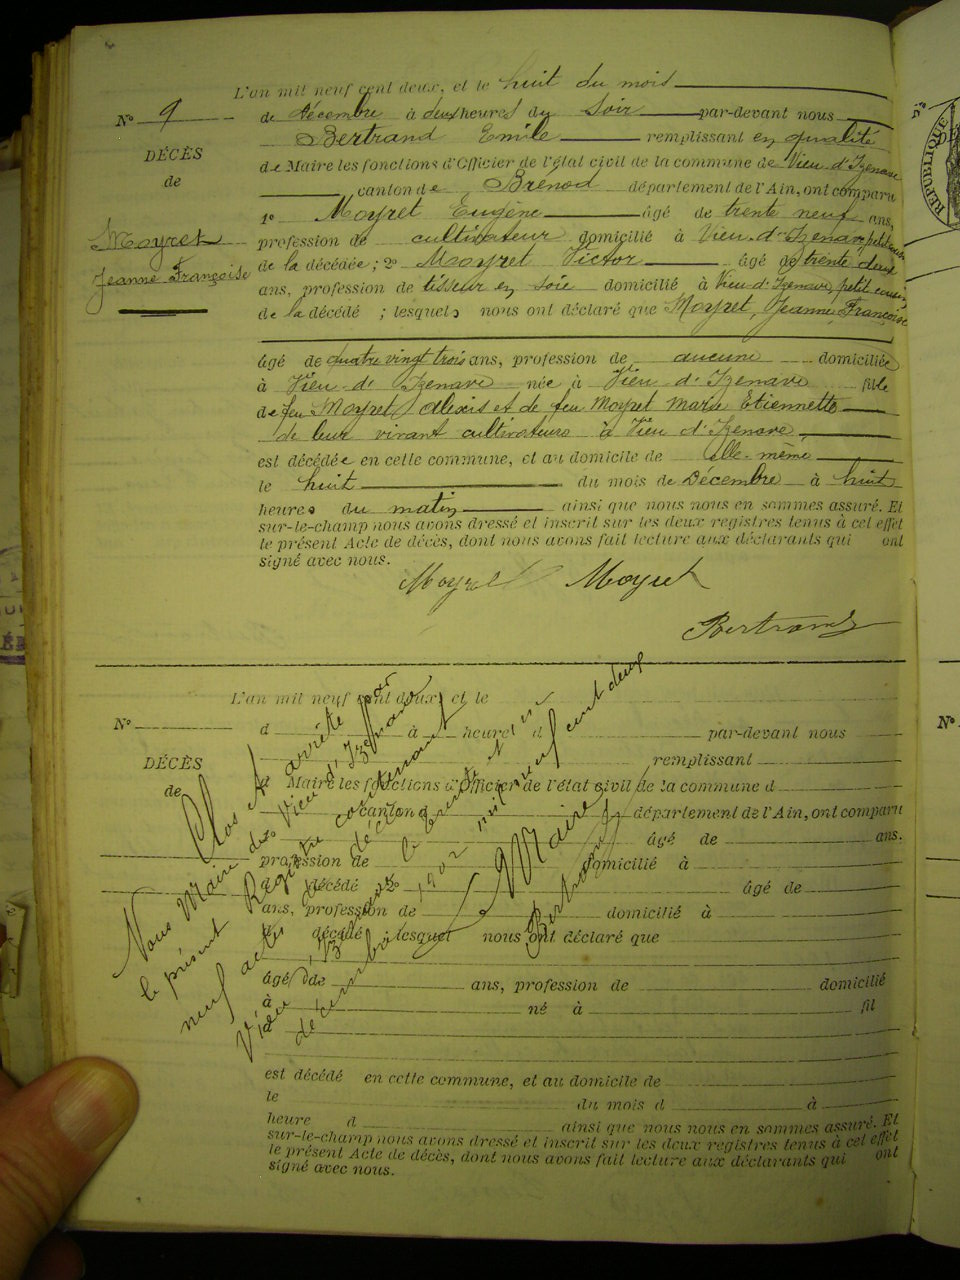 L'an mil neuf cent deux, et le huit du mois
N° 9
de décembre à deux heures du soir par-devant nous
Bertrand Emile remplissant en qualité
DÉCÈS
de Maire les fonctions d'Officier de l'état civil de la commune de Vieu-d'Izenave
de
canton de Brénod département de l'Ain, ont comparu
1° Moyret Eugène âgé de trente neuf ans,
Moyret
Jeanne Françoise
profession de cultivateur domicilié à Vieu-d'Izenave, petit cousin
de la décédée ; 2° Moyret Victor âgé de trente deux
ans, profession de tisseur en soie domicilié à Vieu d'Izenave, petit cousin
de la décédé ; lesquels nous ont déclaré que Moyret, Jeanne, Françoise
âgé de quatre vingt trois ans, profession de aucune domiciliée
à Vieu-d'Izenave née à Vieu d'Izenave fille
de feu Moyret Alexis et de feu Moyret Marie Etiennette
de leur vivant cultivateurs à Vieu d'Izenave,
est décédée en cette commune, et au domicile de elle-même
le huit du mois de Décembre à huit
heures du matin ainsi que nous nous en sommes assuré. Et
sur-le-champ nous avons dressé et inscrit sur les deux registres tenus à cet effet
le présent Acte de décès, dont nous avons fait lecture aux déclarants qui ont
signé avec nous.
Moyret Moyret
Bertrand
L'an mil neuf cent deux, et le
N°
d à heure d par-devant nous
remplissant
DÉCÈS
d Maire les fonctions d'Officier de l'état civil de la commune d
de
canton d département de l'Ain, ont comparu
âgé de ans.
profession de domicilié à
d décédé 2° âgé de
ans, profession de domicilié à
d décédé ; lesquel nous ont déclaré que
âgé de ans, profession de domicilié
à né à fil
est décédé en cette commune, et au domicile de
le du mois d à
heure d ainsi que nous nous en sommes assuré. Et
sur-le-champ nous avons dressé et inscrit sur les deux registres tenus à cet effet
le présent Acte de décès, dont nous avons fait lecture aux déclarants qui ont
signé avec nous.
Clos et arrêté par
Nous Maire de Vieu d'Izenave
le présent Registre contenant
neuf actes de décès
Vieu d'Izenave le trente et un
décembre 1902 mil neuf cent deux
Le Maire
Bertrand
N°
RÉPUBLIQUE
N°